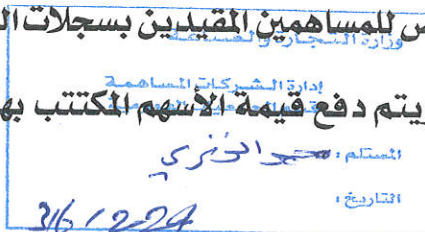 س للمساهمين المقيدين بسجلات ال
وزارة التجارة والصناعة
إدارة الشركات المساهمة
يتم دفع قيمة الأسهم المكتتب به
المستلم:
التاريخ: